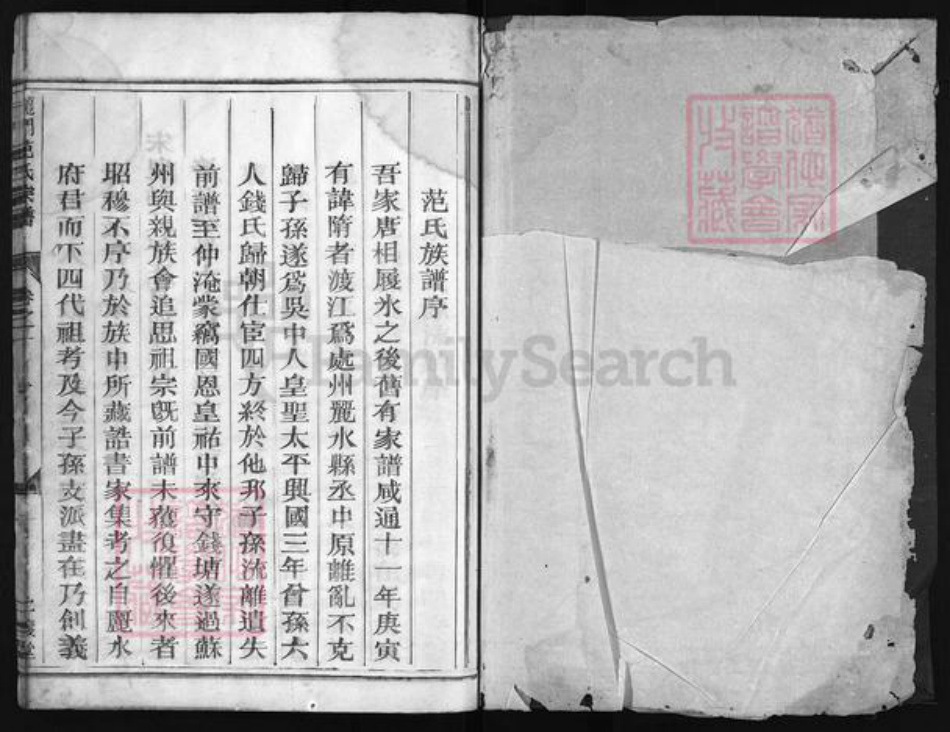 范氏族譜序
吾家唐相履氷之後舊有家譜咸通十一年庚寅
有諱隋者渡江爲處州麗水縣丞中原離亂不克
歸子孫遂爲吳中人皇聖太平興國三年曾孫六
人錢氏歸朝仕宦四方終於他邦子孫流離遺失
前譜至仲淹蒙竊國恩皇祐中來守錢塘遂過蘇
州與親族會追思祖宗旣前譜未獲復懼後來者
昭穆不序乃於族中所藏誥書家集考之自麗水
府君而下四代祖考及今子孫支派盡在乃創義
范氏宗譜
FamilySearch